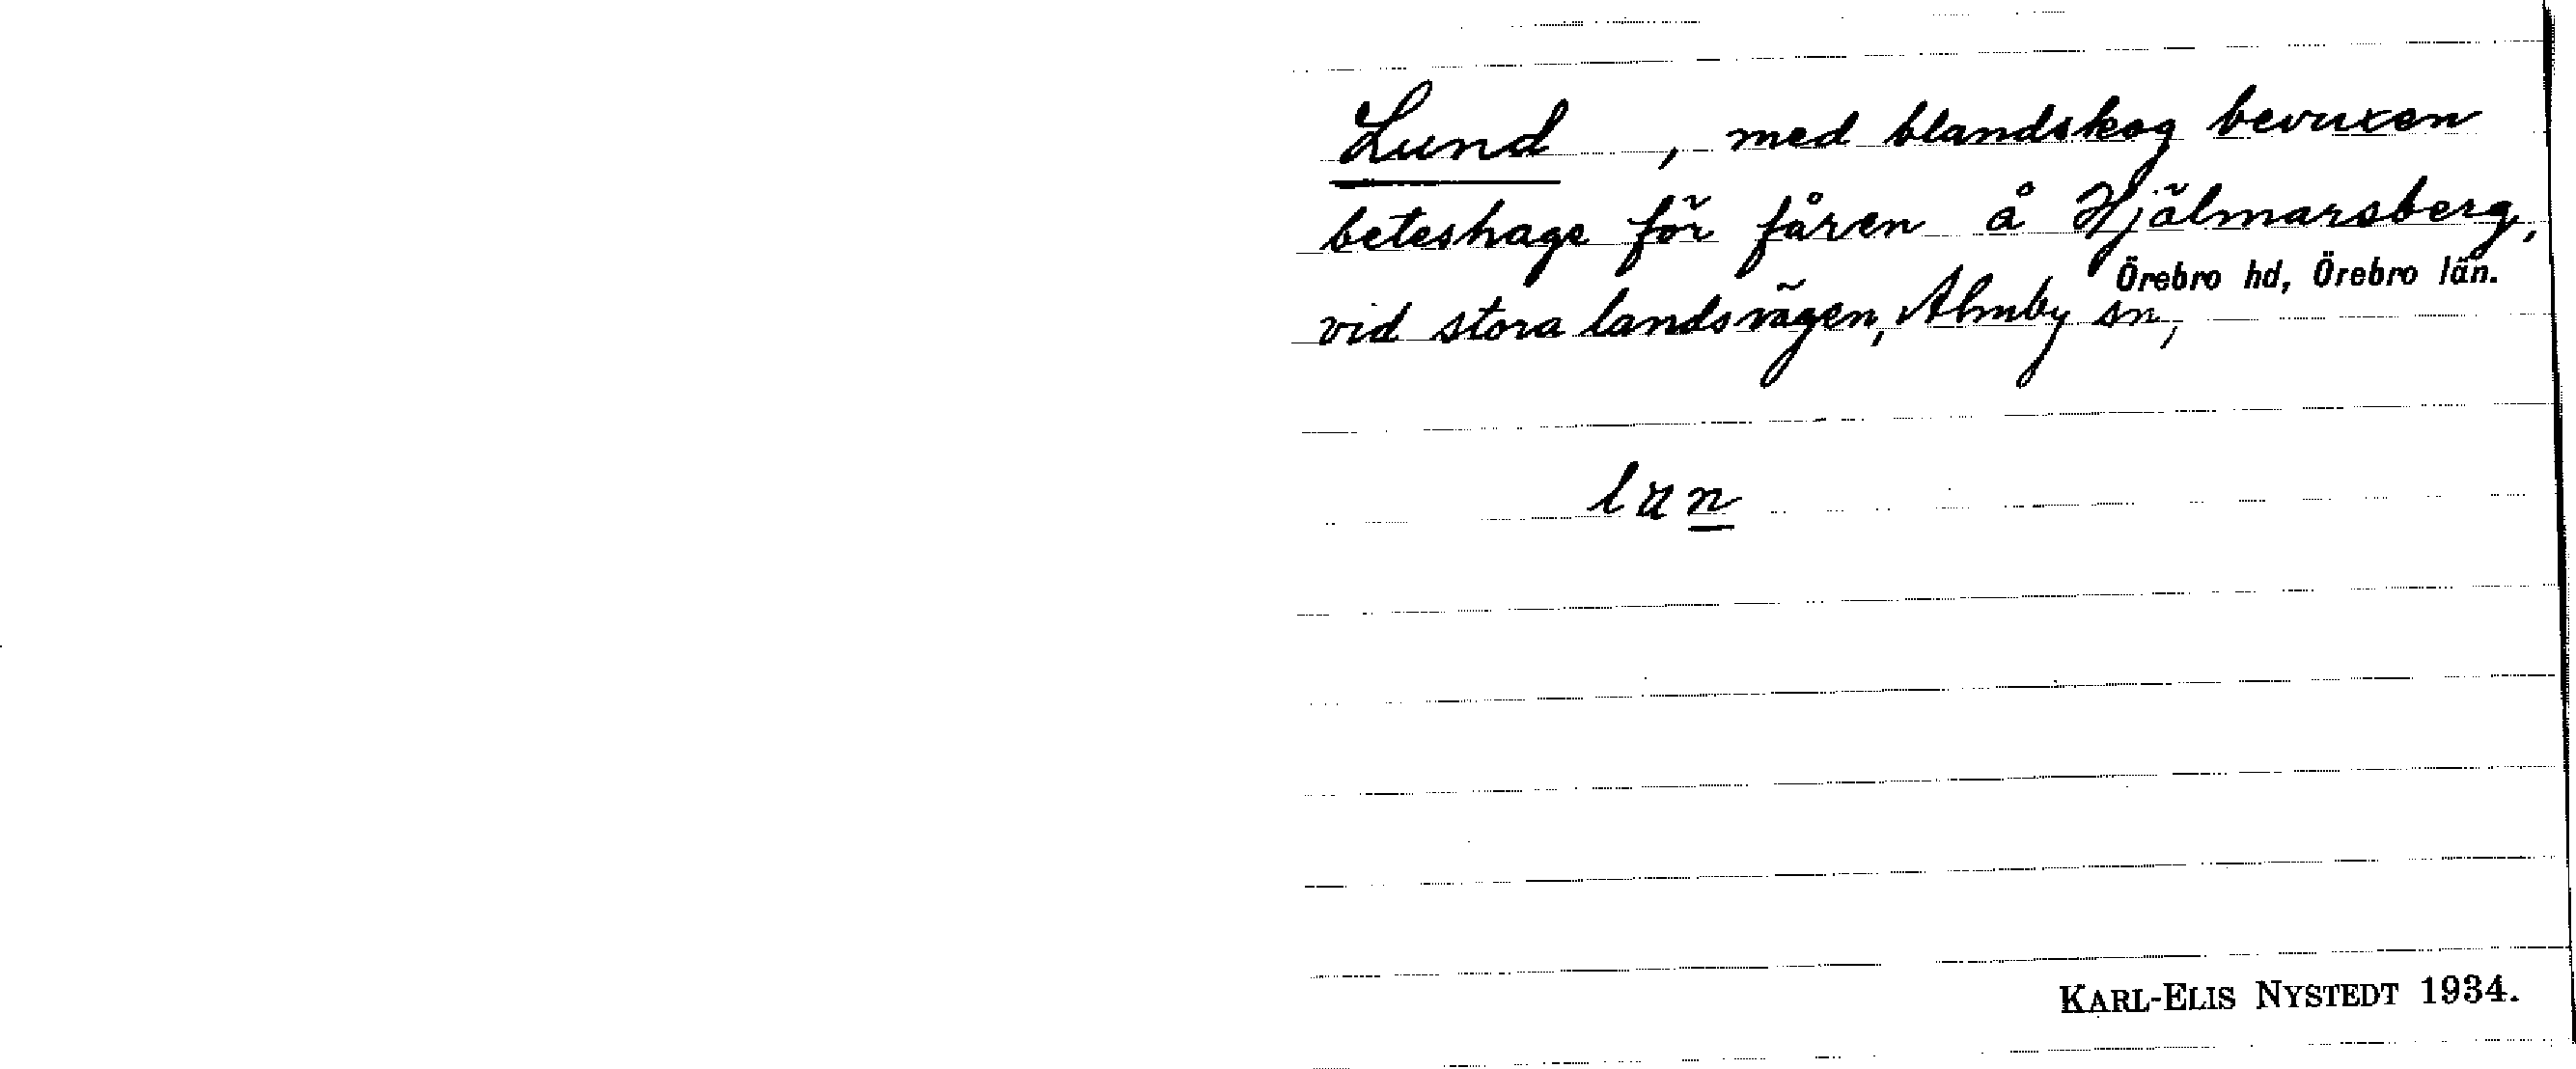 Lund, med blandskog bevuxen
beteshage för fåren å Hjälmarsberg,
vid stora landsvägen, Almby sn, Örebro hd, Örebro län.
lun
KARL-ELIS NYSTEDT 1934.